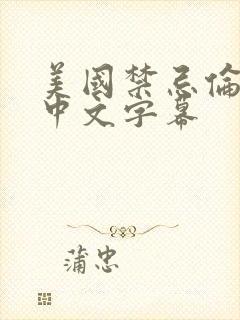 美國禁忌倫
中文字幕
蒲忠